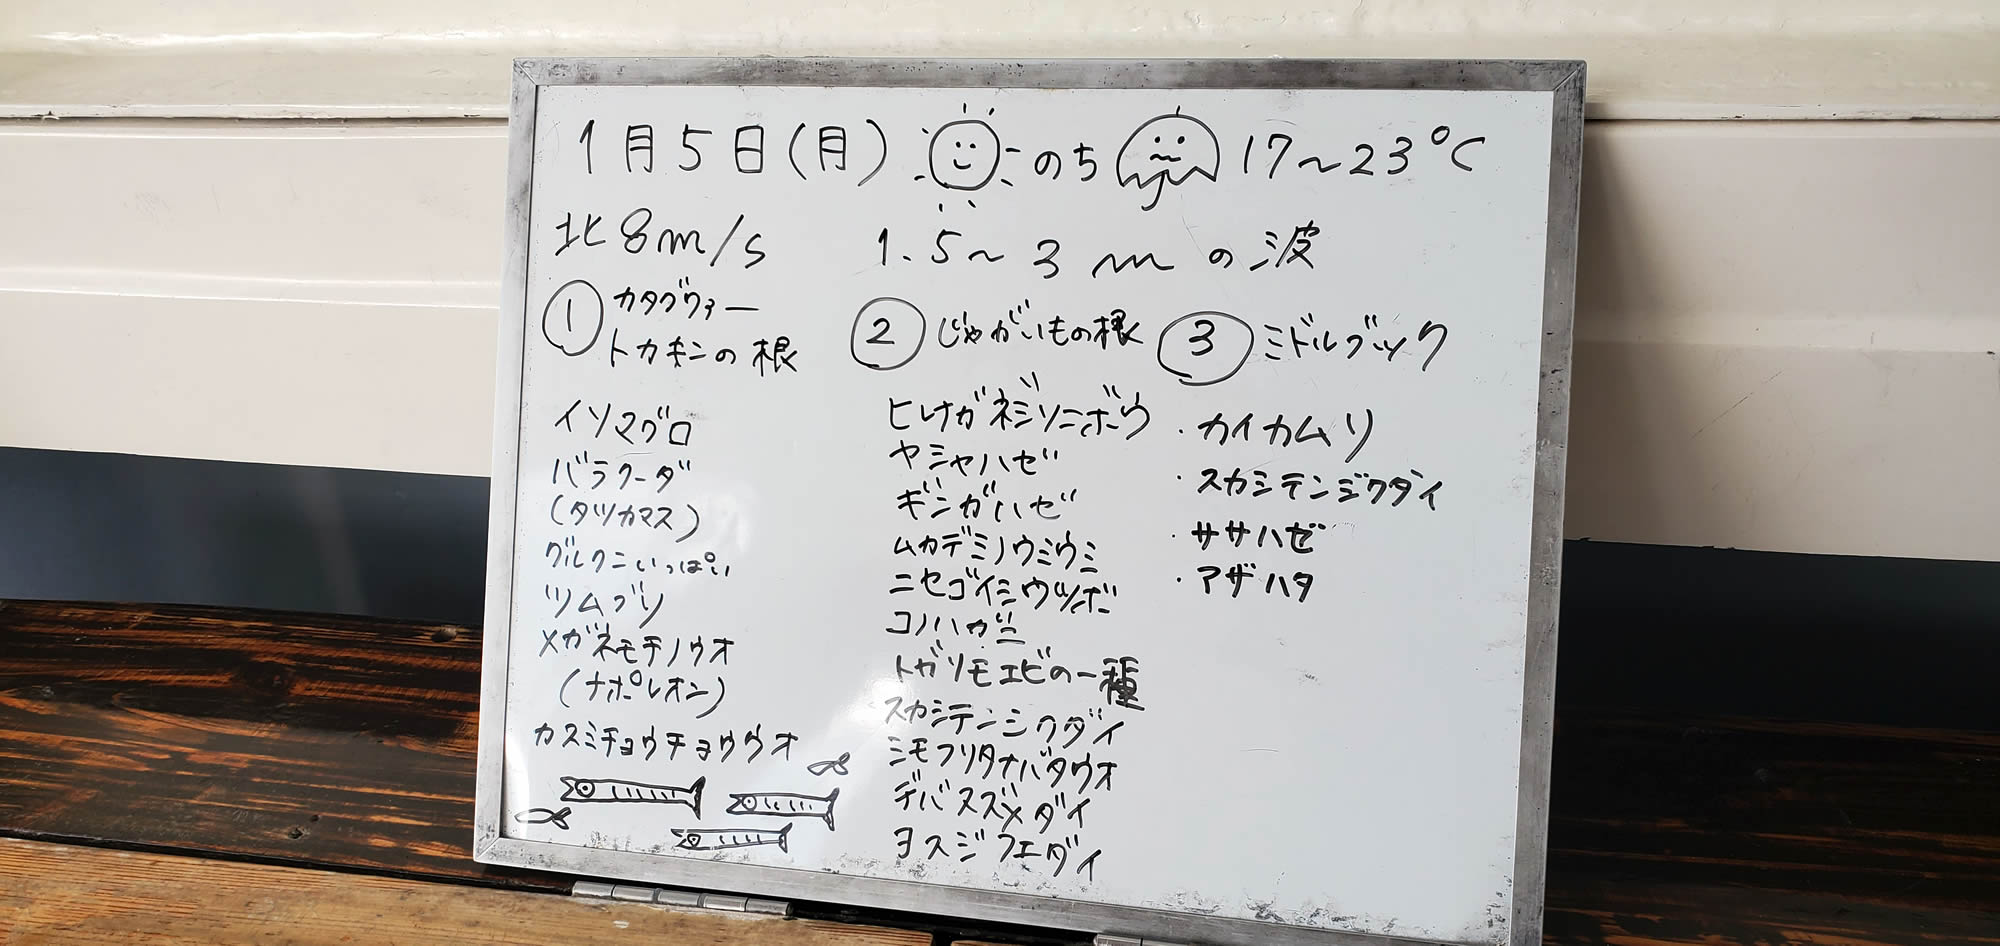 1月5日(月) のち 17～23℃
北8m/s 1.5～3mの波
① カタグヮー
トカキンの根
イソマグロ
バラクーダ
(タツカマス)
グルクンいっぱい
ツムブリ
メガネモチノウオ
(ナポレオン)
カスミチョウチョウウオ
② じゃがいもの根
ヒレナガネジリンボウ
ヤシャハゼ
ギンガハゼ
ムカデミノウミウシ
ニセゴイシウツボ
コノハガニ
トガリモエビの一種
スカシテンジクダイ
シモフリタナバタウオ
デバスズメダイ
ヨスジフエダイ
③ ミドルブック
・カイカムリ
・スカシテンジクダイ
・ササハゼ
・アザハタ